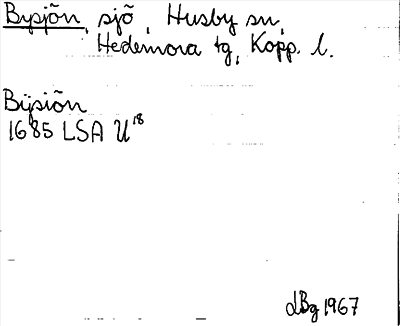 Bysjön, sjö, Husby sn,
Hedemora tg, Kopp. l.
Bÿsiön
1685 LSA U¹⁸
LBg 1967